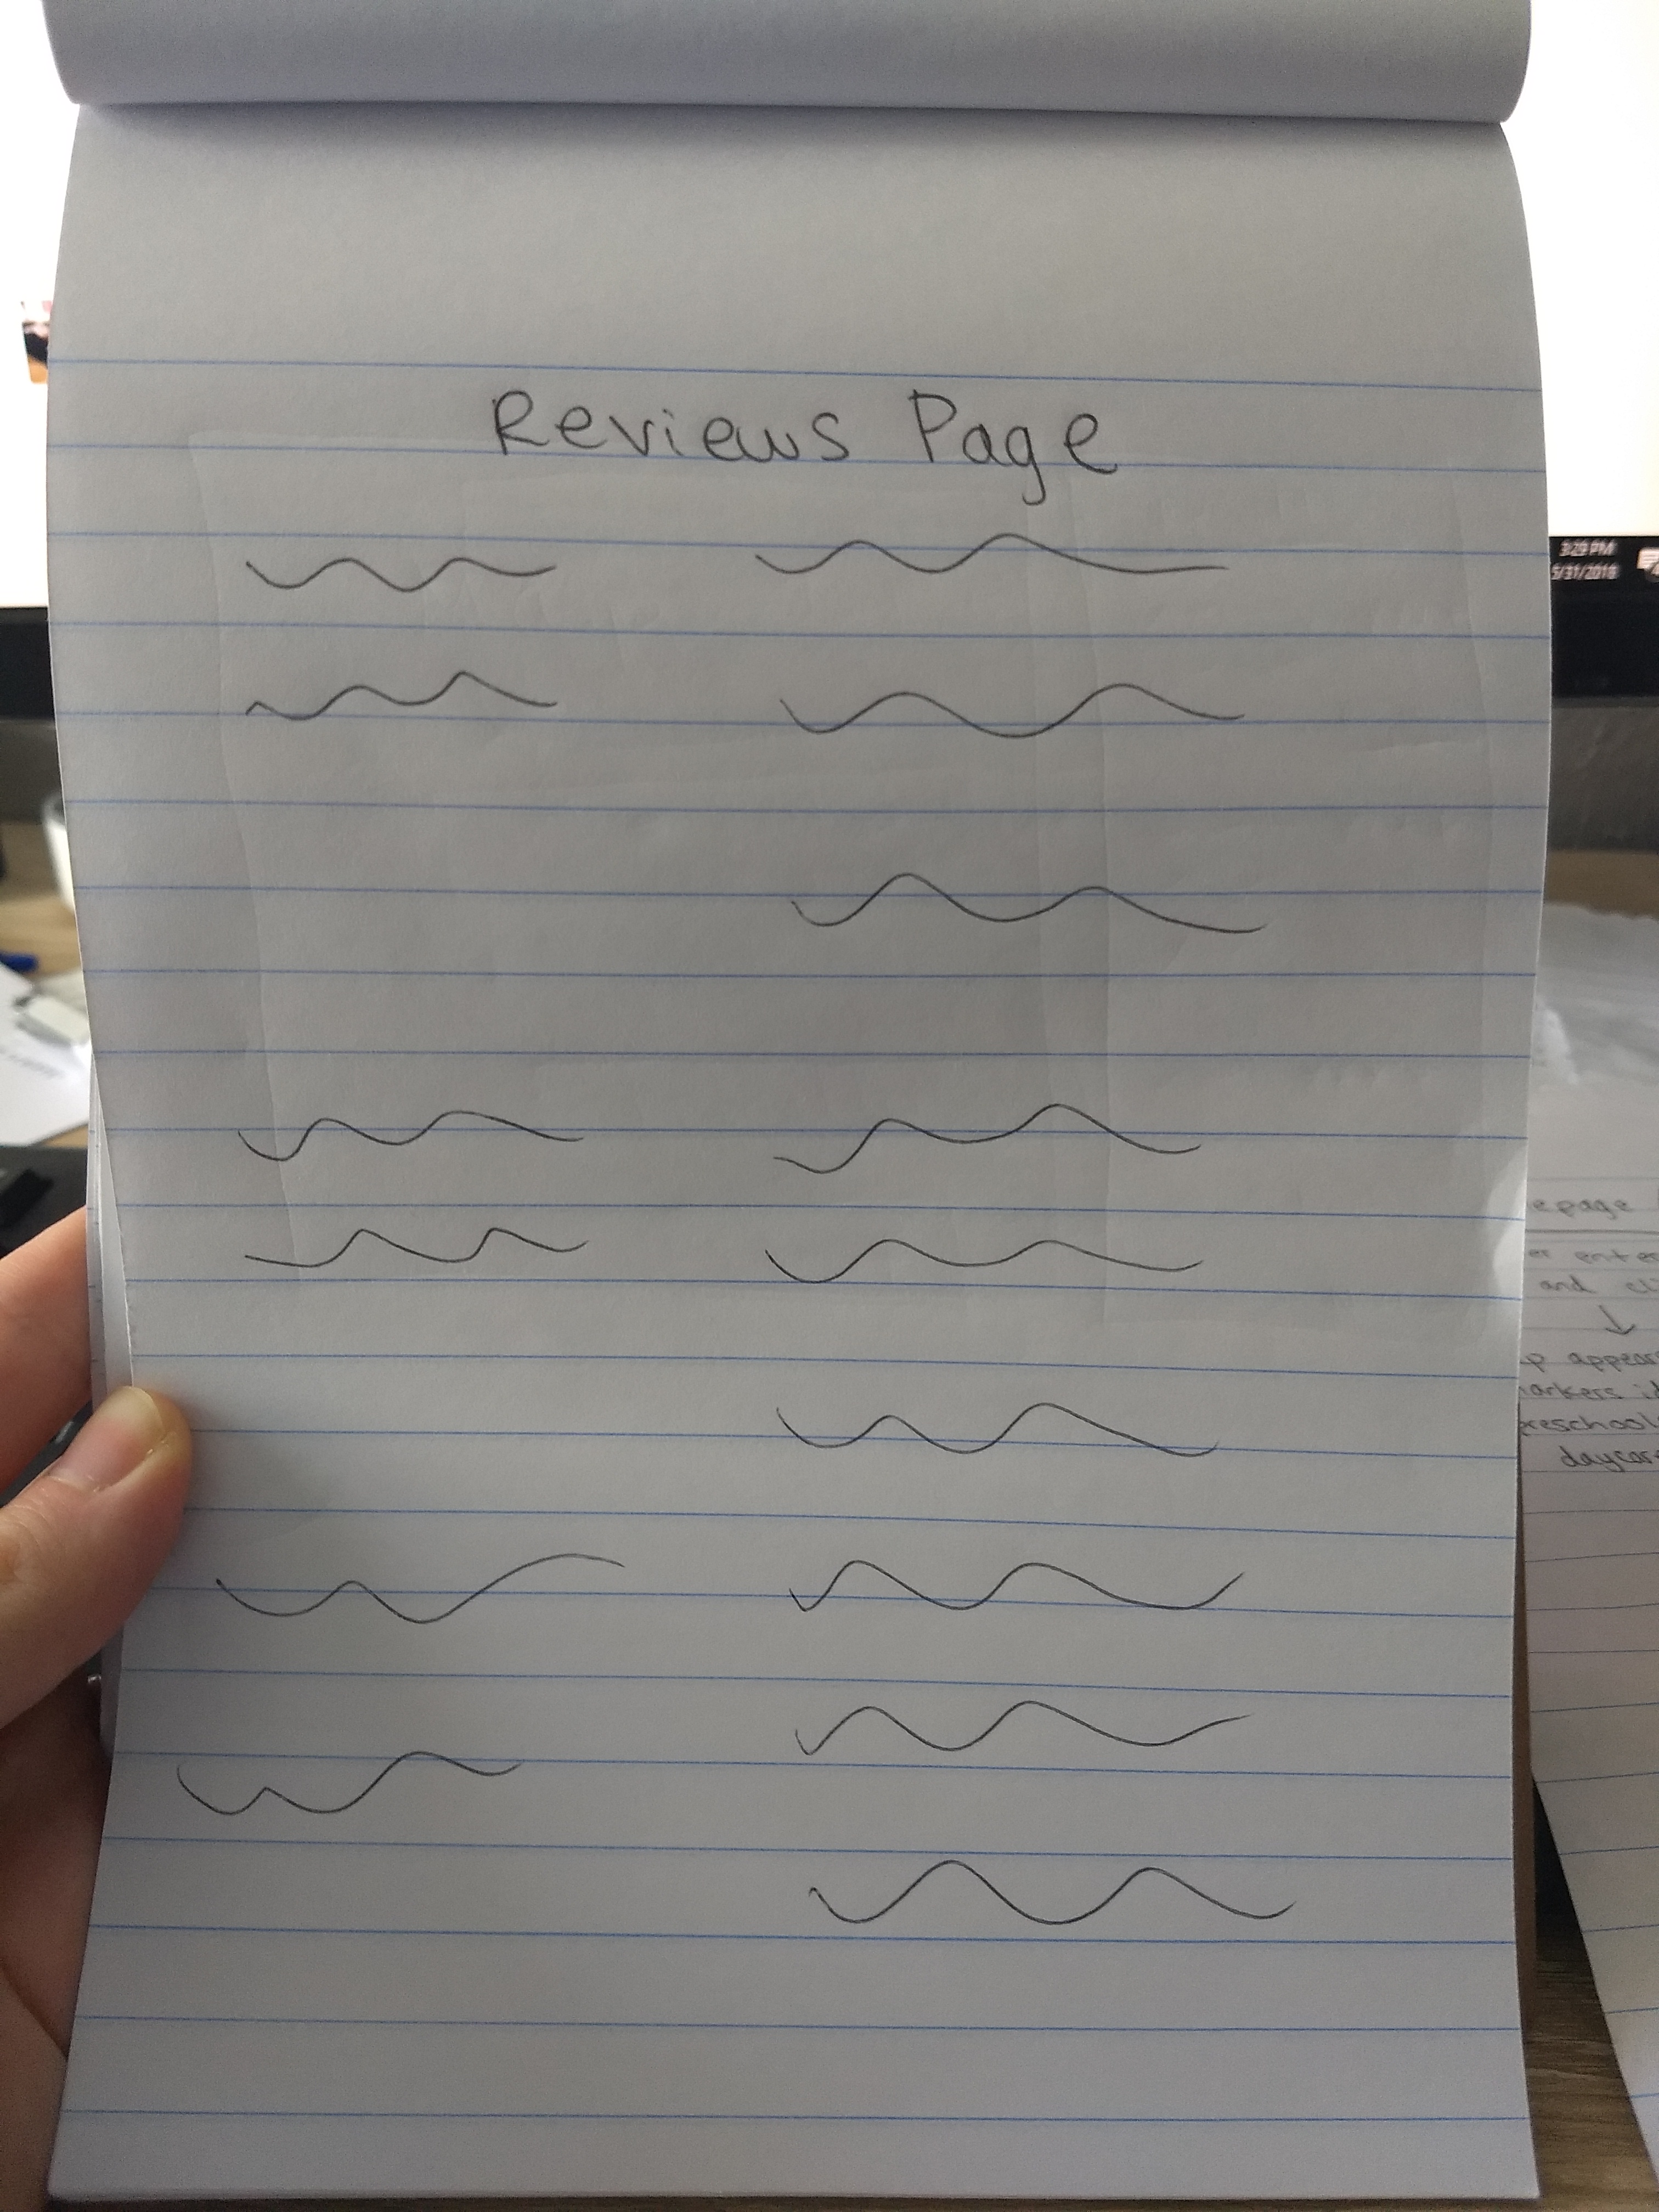 Reviews Page
3:29 PM
5/31/2018
epage
er enter
and cl
↓
p appears
markers id
preschool
daycare